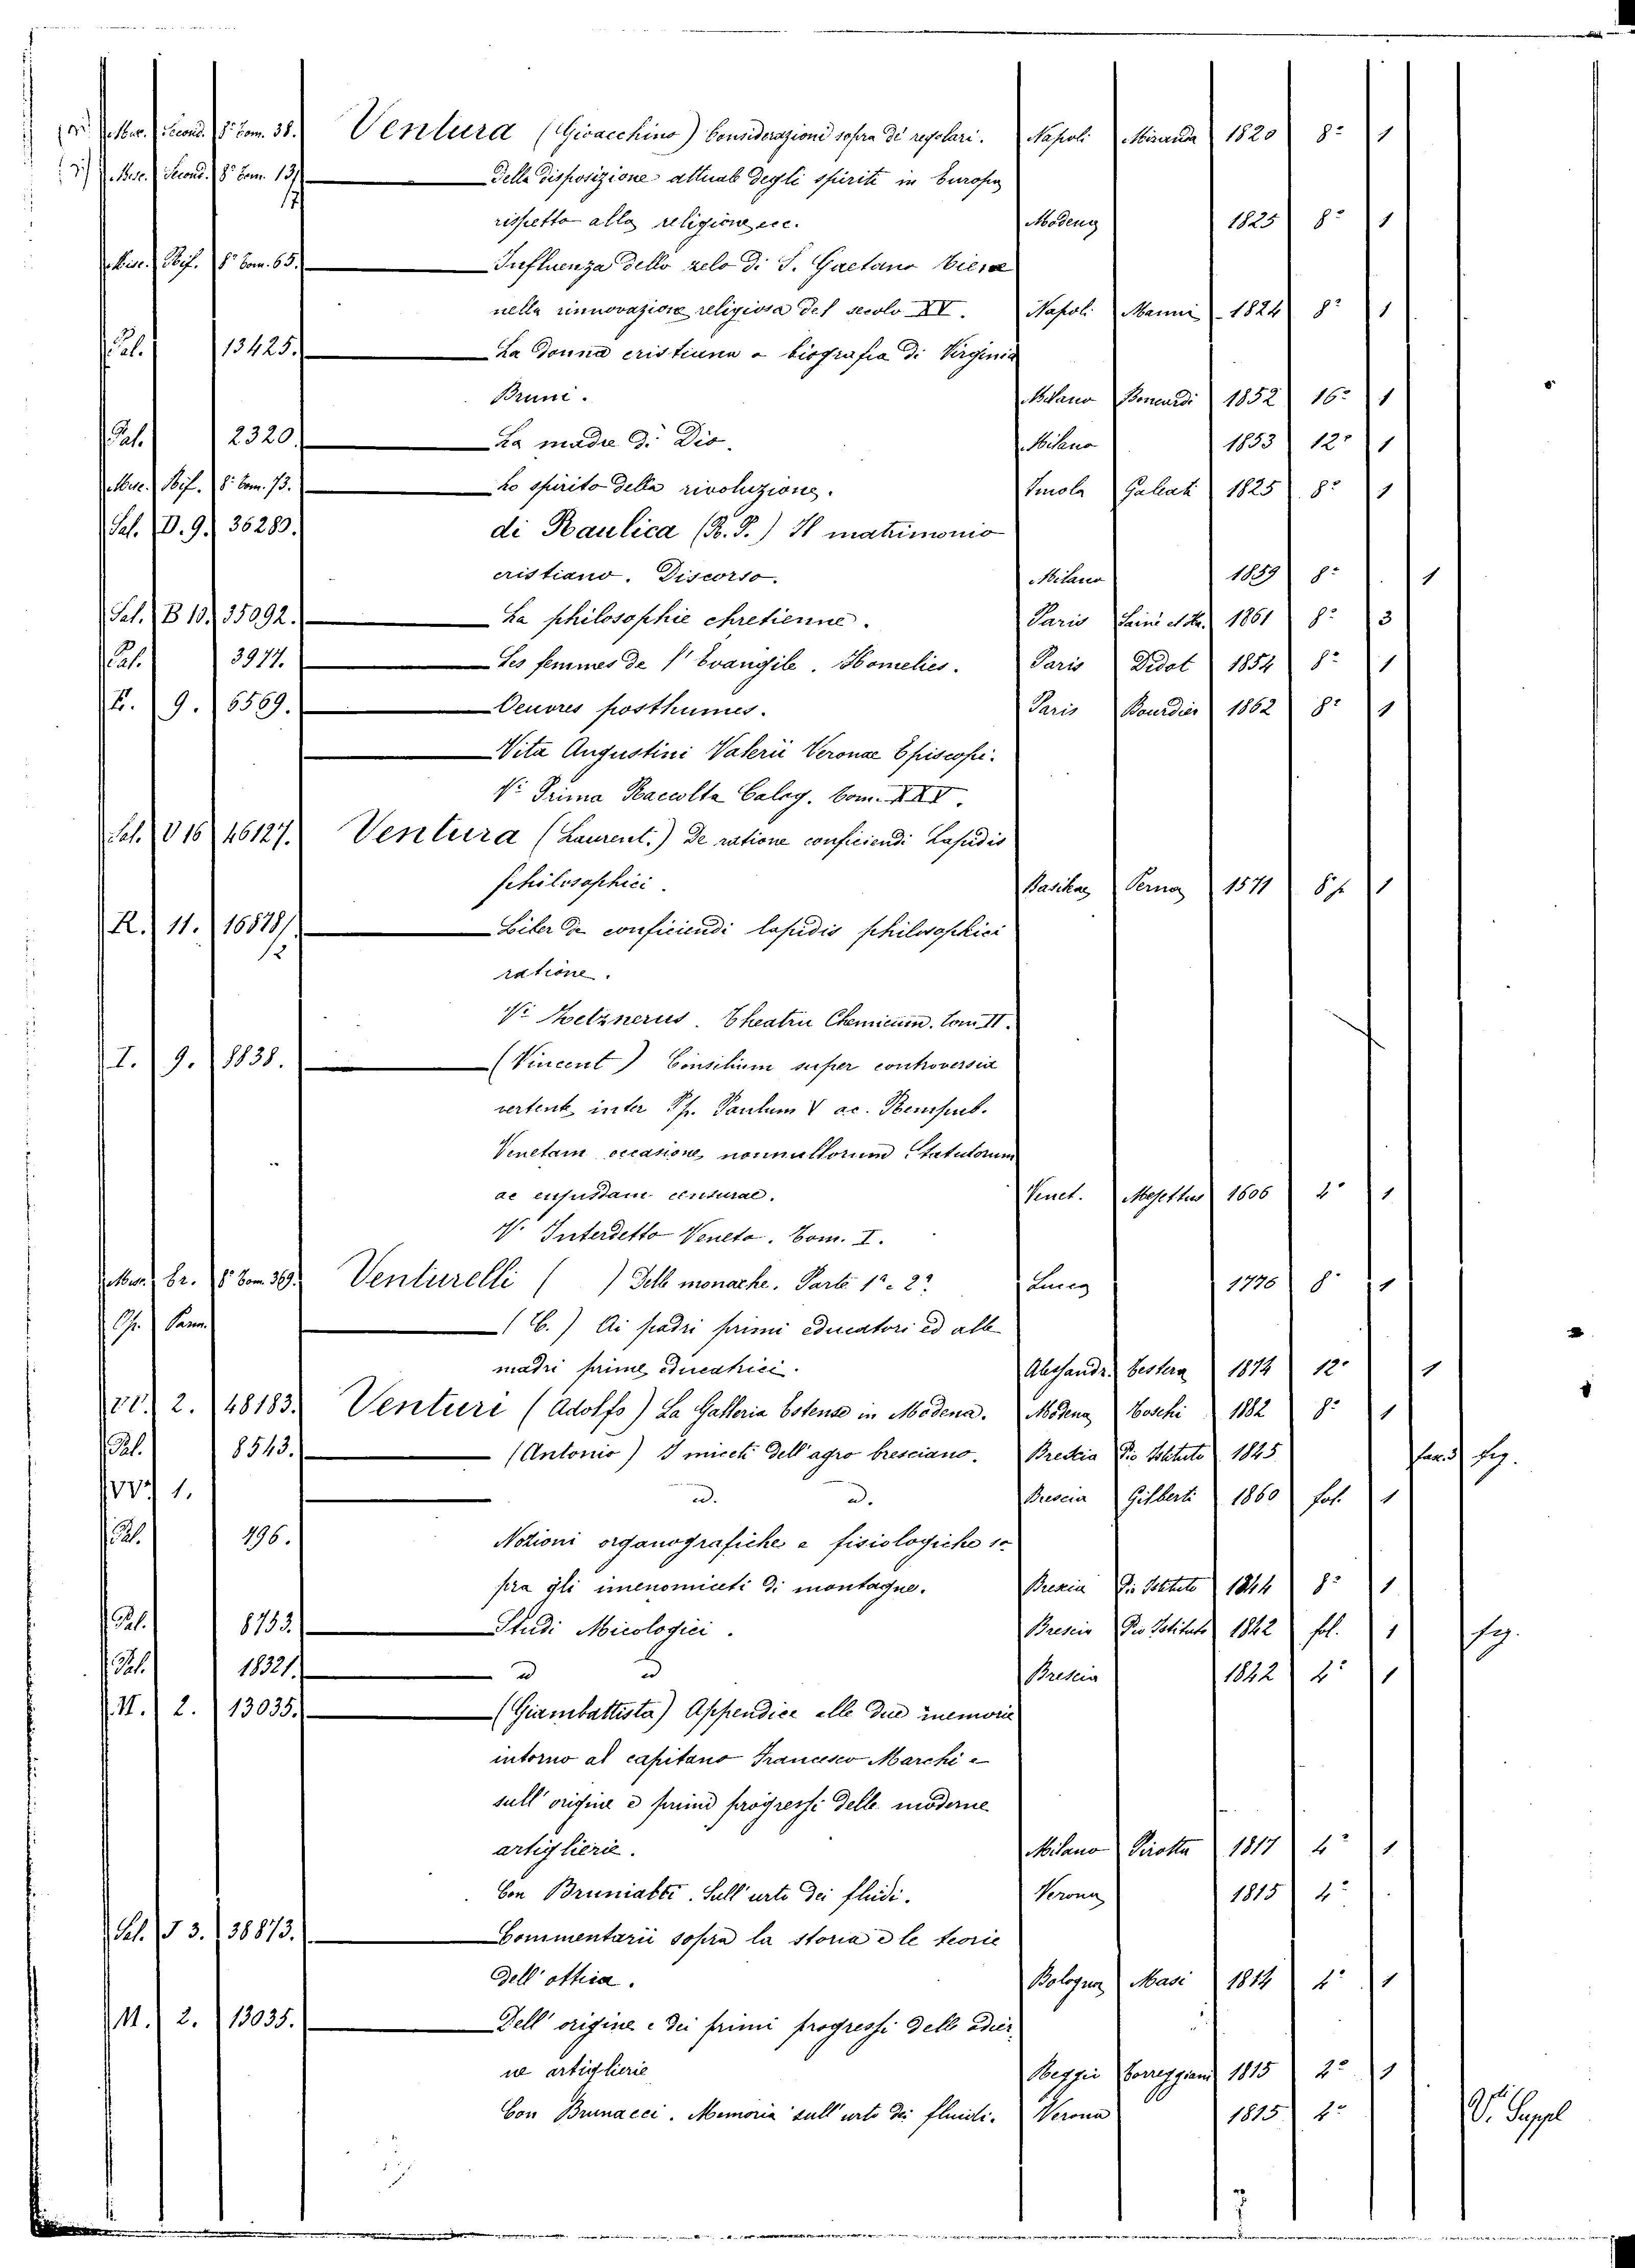 Misc. Second. 8° Tom. 38. Ventura (Gioacchino) Considerazioni sopra di regolari. Napoli Miranda 1820 8° 1
Misc. Second. 8° Tom. 13/17 Della disposizione attuale degli spiriti in Europa
rispetto alla religione ecc. Modena 1825 8° 1
Misc. Bif. 8° Tom. 65. Influenza dello zelo di S. Gaetano Tiene
nella rinnovazione religiosa del secolo XV. Napoli Manni 1824 8° 1
Pal. 13425. La donna cristiana e biografia di Virginia
Bruni. Milano Boniardi 1852 16° 1
Pal. 2320. La madre di Dio. Milano 1853 12° 1
Misc. Bif. 8° Tom. 73. Lo spirito della rivoluzione. Imola Galeati 1825 8° 1
Sal. D. 9. 36280. di Raulica (R. P.) Il matrimonio
cristiano. Discorso. Milano 1859 8° 1
Sal. B 10. 35092. La philosophie chretienne. Paris 1861 8° 3
Pal. 3977. Les femmes de l'Evangile. Homelies. Paris Didot 1854 8° 1
9. 6569. Oeuvres posthumes. Paris Bourdier 1862 8° 1
Vita Augustini Valerii Veronae Episcopi.
V. Prima Raccolta Calog. Tom. XXV.
Sal. V 16 46127. Ventura (Laurent.) De ratione conficiendi Lapidis
philosophici. Basileae Perna 1571 8° 1
R. 11. 16878/2 Liber de conficiendi lapidis philosophici
ratione.
V. Zetznerus. Theatru Chemicum. tom II.
I. 9. 8838. (Vincent) Consilium super controversia
vertente inter Pp. Paulum V ac. Rempub.
Venetam occasione nonnullorum Statutorum
ac cujusdam censurae. Venet. Mejettus 1606 4° 1
V. Interdetto Veneto. Tom. I.
Misc. Er. 8° Tom. 369. Venturelli ( ) Delle monache. Parte 1° 2° Lucca 1776 8° 1
(C.) Ai padri primi educatori ed alle
madri prime educatrici. Alessandr. Testera 1874 12° 1
2. 48183. Venturi (Adolfo) La Galleria Estense in Modena. Modena Toschi 1882 8° 1
Pal. 8543. (Antonio) I miceti dell'agro bresciano. Brescia Pio Istituto 1845 fig.
1. id. id. Brescia Gilberti 1860 fol. 1
Pal. 496. Nozioni organografiche e fisiologiche so
pra gli imenomiceti di montagne. Brescia Pio Istituto 1844 8° 1
Pal. 8753. Studi Micologici. Brescia Pio Istituto 1842 fol. 1 fig.
Pal. 18321. id id Brescia 1842 4° 1
M. 2. 13035. (Giambattista) Appendice alle due memorie
intorno al capitano Francesco Marchi e
sull'origine e primi progressi delle moderne
artiglierie. Milano Pirotta 1817 4° 1
Con Bruniatti. Sull'urto dei fluidi. Verona 1815 4°
Sal. J 3. 38873. Commentarii sopra la storia e le teorie
dell'ottica. Bologna Masi 1814 4° 1
M. 2. 13035. Dell'origine e dei primi progressi delle odier
ne artiglierie Reggio Torreggiani 1815 4° 1
Con Brunacci. Memoria sull'urto dei fluidi. Verona 1815 4° V. Suppl